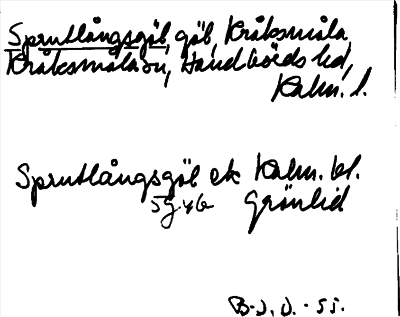 Sprutlångsgöl, göl, Kråksmåla,
Kråksmåla sn, Handbörds hd,
Kalm. l.
Sprutlångsgöl ek Kalm. bl.
5G yb Grönlid
B-J. J. - 55.